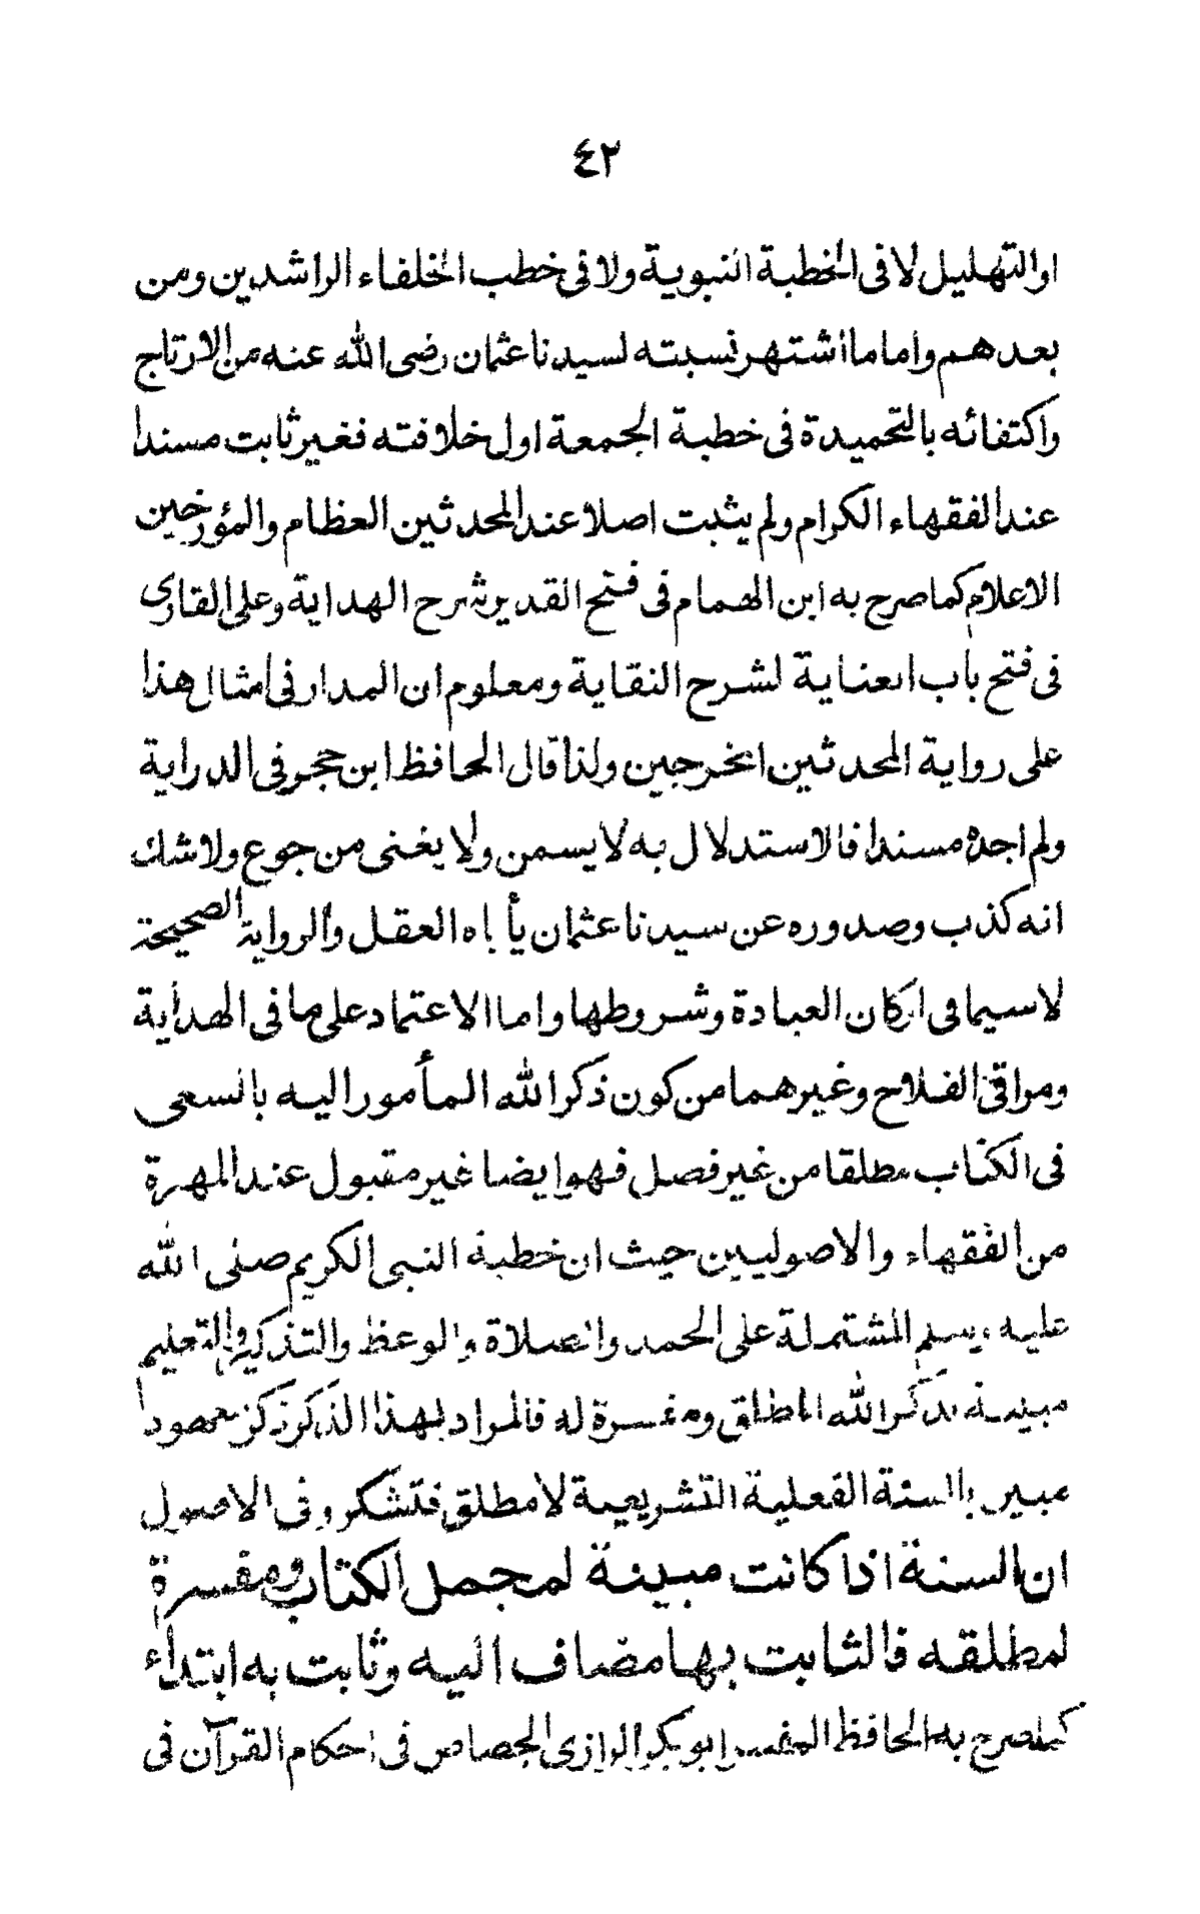 ٤٢
اوالتهليل لا فى الخطبة النبوية ولا فى خطب الخلفاء الراشدين ومن
بعدهم واما ما اشتهر نسبته لسيدنا عثمان رضى الله عنه من الارتاج
واكتفائه بالتحميدة فى خطبة الجمعة اول خلافته فغير ثابت مسندا
عند الفقهاء الكرام ولم يثبت اصلا عند المحدثين العظام والمؤرخين
الاعلام كما صرح به ابن الهمام فى فتح القدير شرح الهداية وعلى القارى
فى فتح باب العناية لشرح النقاية ومعلوم ان المدار فى امثال هذا
على رواية المحدثين المخرجين ولذا قال الحافظ ابن حجر فى الدراية
ولم اجده مسندا فالاستدلال به لا يسمن ولا يغنى من جوع ولا شك
انه كذب وصدوره عن سيدنا عثمان يأباه العقل والرواية الصحيحة
لا سيما فى اركان العبادة وشروطها واما الاعتماد على ما فى الهداية
ومراقى الفلاح وغيرهما من كون ذكر الله المأمور اليه بالسعى
فى الكتاب مطلقا من غير فصل فهو ايضا غير متبول عند المهرة
من الفقهاء والاصوليين حيث ان خطبة النبى الكريم صلى الله
عليه وسلم المشتملة على الحمد والصلاة والوعظ والتذكير والتعليم
مبينة لذكر الله المطلق ومفسرة له فالمراد بهذا الذكر ذكر معهود
مبين بالسنة الفعلية التشريعية لا مطلق فتشكر وفى الاصول
ان السنة اذا كانت مبينة لمجمل الكتاب ومفسرة
لمطلقه فالثابت بها مضاف اليه وثابت به ابتداء
كما صرح به الحافظ المفسر ابو بكر الرازى الجصاص فى احكام القرآن فى